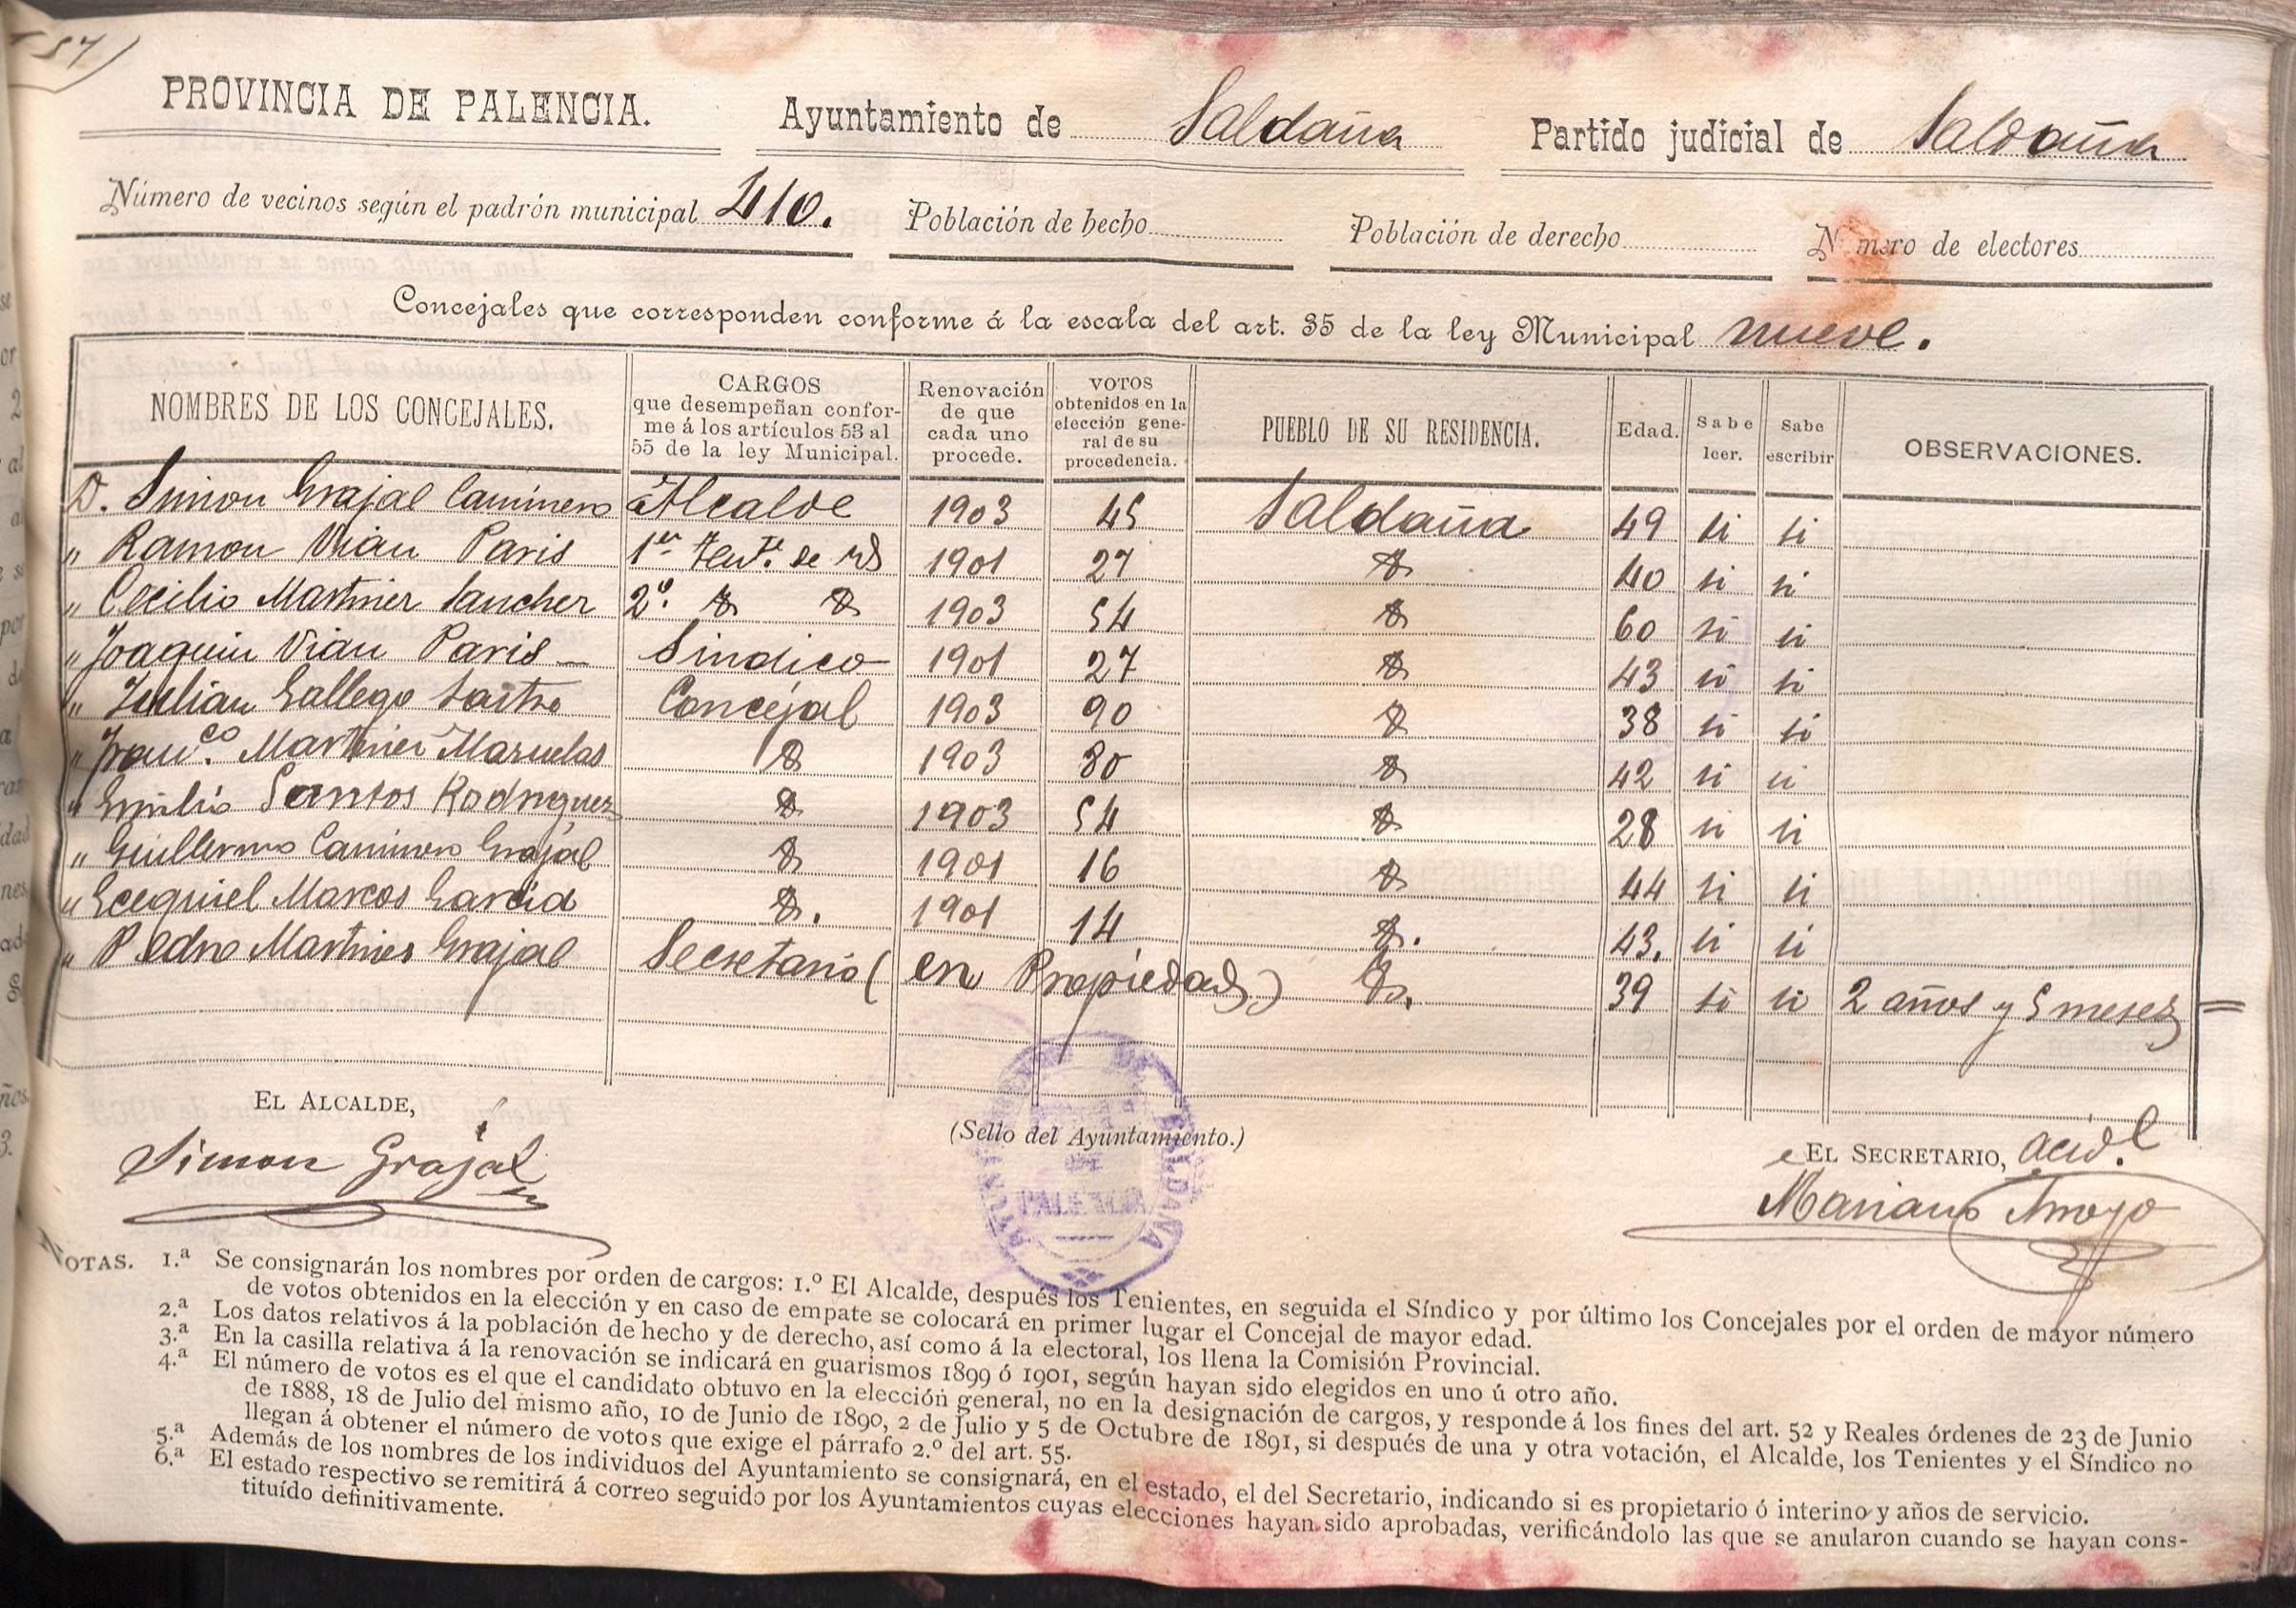 57)
PROVINCIA DE PALENCIA. Ayuntamiento de Saldaña Partido judicial de Saldaña
Número de vecinos según el padrón municipal 410. Población de hecho Población de derecho Número de electores
Concejales que corresponden conforme á la escala del art. 35 de la ley Municipal nueve.
NOMBRES DE LOS CONCEJALES. CARGOS que desempeñan conforme á los artículos 53 al 55 de la ley Municipal. Renovación de que cada uno procede. VOTOS obtenidos en la elección general de su procedencia. PUEBLO DE SU RESIDENCIA. Edad. Sabe leer. Sabe escribir OBSERVACIONES.
D. Simon Grajal Caminero Alcalde 1903 45 Saldaña 49 si si
" Ramon Vian Paris 1er Tent. de id 1901 27 40 si si
" Cecilio Martinez Sanchez 2º. 1903 54 60 si si
" Joaquin Vian Paris Sindico 1901 27 43 si si
" Julian Gallego Sastre Concejal 1903 90 38 si si
" Franco. Martinez Mazuelas 1903 80 42 si si
" Emilio Santos Rodriguez 1903 54 28 si si
" Guillermo Caminero Grajal 1901 16 44 si si
" Ecequiel Marcos Garcia 1901 14 43. si si
" Pedro Martinez Grajal Secretario (en Propiedad) 39 si si 2 años y 5 meses =
EL ALCALDE,
(Sello del Ayuntamiento.)
EL SECRETARIO, acid.l
Simon Grajal
Mariano Arroyo
PALENCIA
NOTAS. 1.ª Se consignarán los nombres por orden de cargos: 1.º El Alcalde, después los Tenientes, en seguida el Síndico y por último los Concejales por el orden de mayor número
de votos obtenidos en la elección y en caso de empate se colocará en primer lugar el Concejal de mayor edad.
2.ª Los datos relativos á la población de hecho y de derecho, así como á la electoral, los llena la Comisión Provincial.
3.ª En la casilla relativa á la renovación se indicará en guarismos 1899 ó 1901, según hayan sido elegidos en uno ú otro año.
4.ª El número de votos es el que el candidato obtuvo en la elección general, no en la designación de cargos, y responde á los fines del art. 52 y Reales órdenes de 23 de Junio
de 1888, 18 de Julio del mismo año, 10 de Junio de 1890, 2 de Julio y 5 de Octubre de 1891, si después de una y otra votación, el Alcalde, los Tenientes y el Síndico no
llegan á obtener el número de votos que exige el párrafo 2.º del art. 55.
5.ª Además de los nombres de los individuos del Ayuntamiento se consignará, en el estado, el del Secretario, indicando si es propietario ó interino y años de servicio.
6.ª El estado respectivo se remitirá á correo seguido por los Ayuntamientos cuyas elecciones hayan sido aprobadas, verificándolo las que se anularon cuando se hayan cons-
tituído definitivamente.